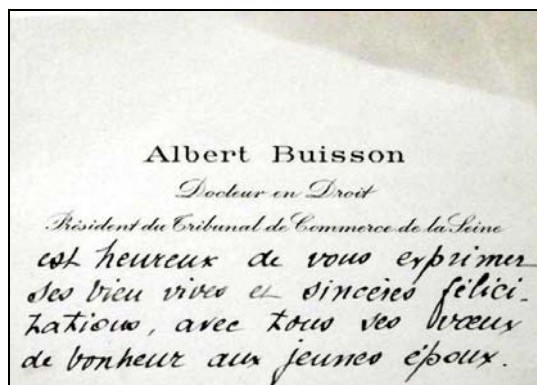 Albert Buisson
Docteur en Droit
Président du Tribunal de Commerce de la Seine
est heureux de vous exprimer
ses bien vives et sincères félici-
tations, avec tous ses vœux
de bonheur aux jeunes époux.